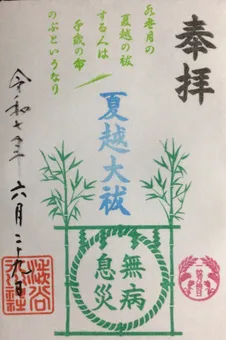 奉拝
水無月の
夏越の祓
する人は
千歳の命
のぶというなり
夏越大祓
無病
息災
六月二十九日
渋谷